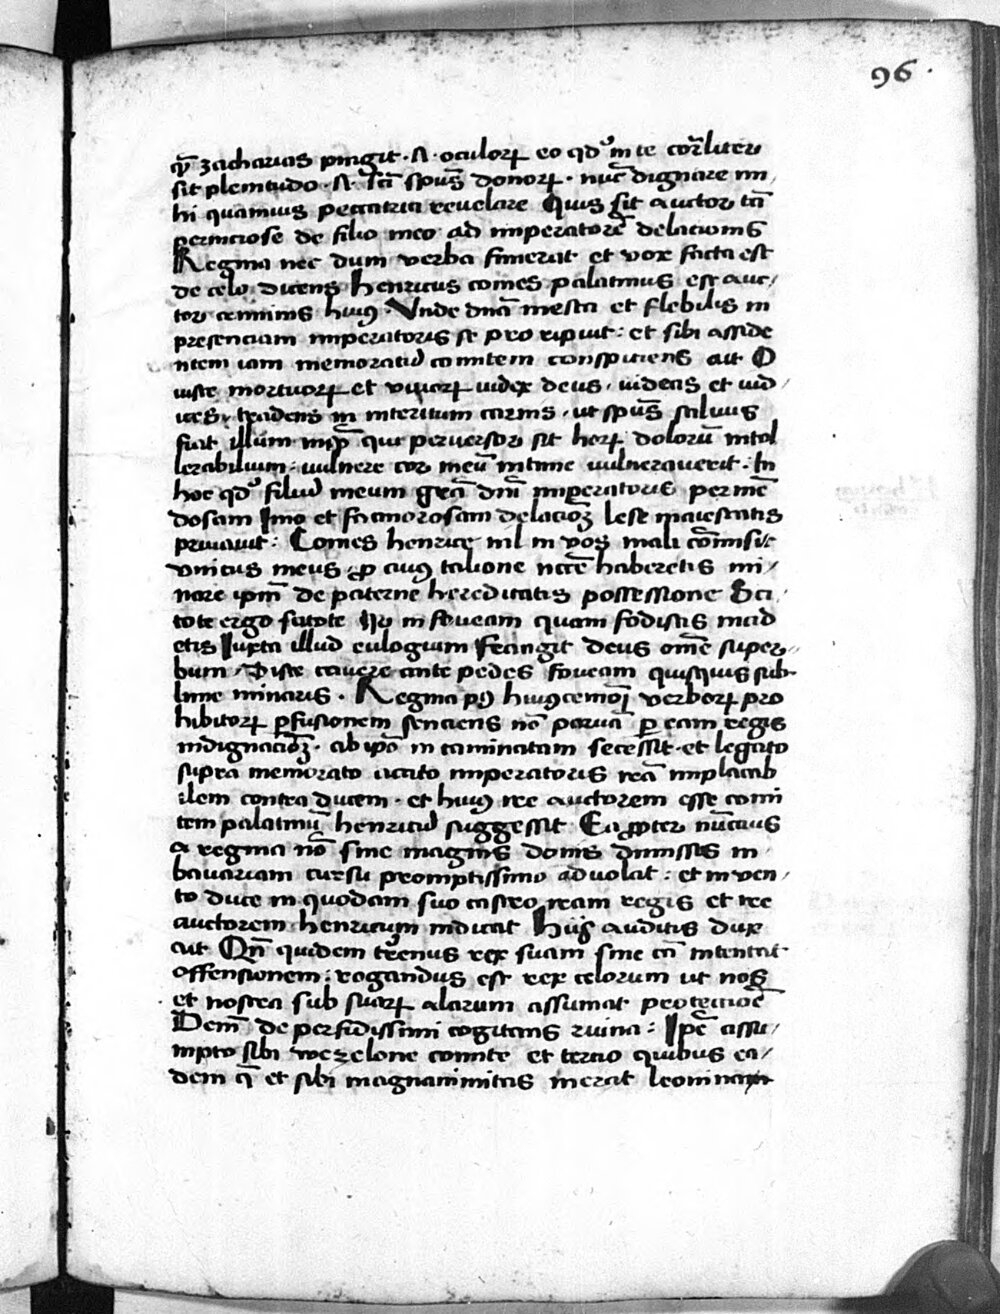 96.
qͥ zacharias pingit · A · oculoꝝ eo qd' in te cor̄liter
sit plenitudo · A · sc̄i spūs donoꝝ · nūc dignare mi
hi quamuis peccatrici reuelare Quis sit auctor tā
perniciose de filio meo ad imperatorē delacionis
Regina nec dum verba finierat et vox facta est
de celo dicens Henricus comes palatinus est auc/
tor criminis huiꝰ · Unde dnā mesta et flebilis in
presenciam imperatoris se pro ripuit : et sibi asside
ntem iam memoratū comitem conspiciens ait O
iuste mortuoꝝ et viuoꝝ iudex deus · uideas et iud /
ices · tradens in interitum carnis · ut spūs saluus
fiat illum imp̄ qui peruersor sit hoꝝ dolorū intol
lerabilium : uulnere cor meū intime uulnerauerit · In
hoc qd' filiū meum grā dn̄i imperatoris per mē
dosam Imo et facinorosam delacōeꝫ lese maiestatis
priuauit : Comes henrice nil in vos mali cōmisit
vnicus meus · ꝓ cuiꝰ talione nēce haberetis mi /
nare ipm̄ de paterne hereditatis possessione Sci /
tote ergo scitote Ir in foueam quam fodistis incid
etis Iuxta illud eulogium Frangit deus om̄e super-
bum / Disce cauere ante pedes foueam quisquis sub-
lime minaris · Regina pꝰ huiꝰcemōi verboꝝ pro
hibitoꝝ ꝓfusionem senciens nō paruā ꝑ eam regis
indignacōeꝫ · ab ipō in caminatam secessit · et legato
supra memorato iicito imperatoris irā implacab
ilem contra ducem · et huiꝰ ree auctorem esse comi
tem palatinū henricū suggessit Ea ꝓpter nūccius
a regina nō sine magnis donis dimissus in
bauariam cursu promptissimo aduolat : et inven /
to duce in quodam suo castro iram regis et ire
auctorem henricum indicat Hijs auditis dux
ait Qn̄ quidem trēnus rex suam sine cā intentat
offensionem : rogandus est rex celorum ut nos
et nostra sub suaꝝ alarum assumat protectioē
Dem̄ de perfidissimi cogitans ruina : Ipē assu /
mpto sibi wezelone comite et tercio quibus ea /
dem q̄ et sibi magnanimitas inerat leonina